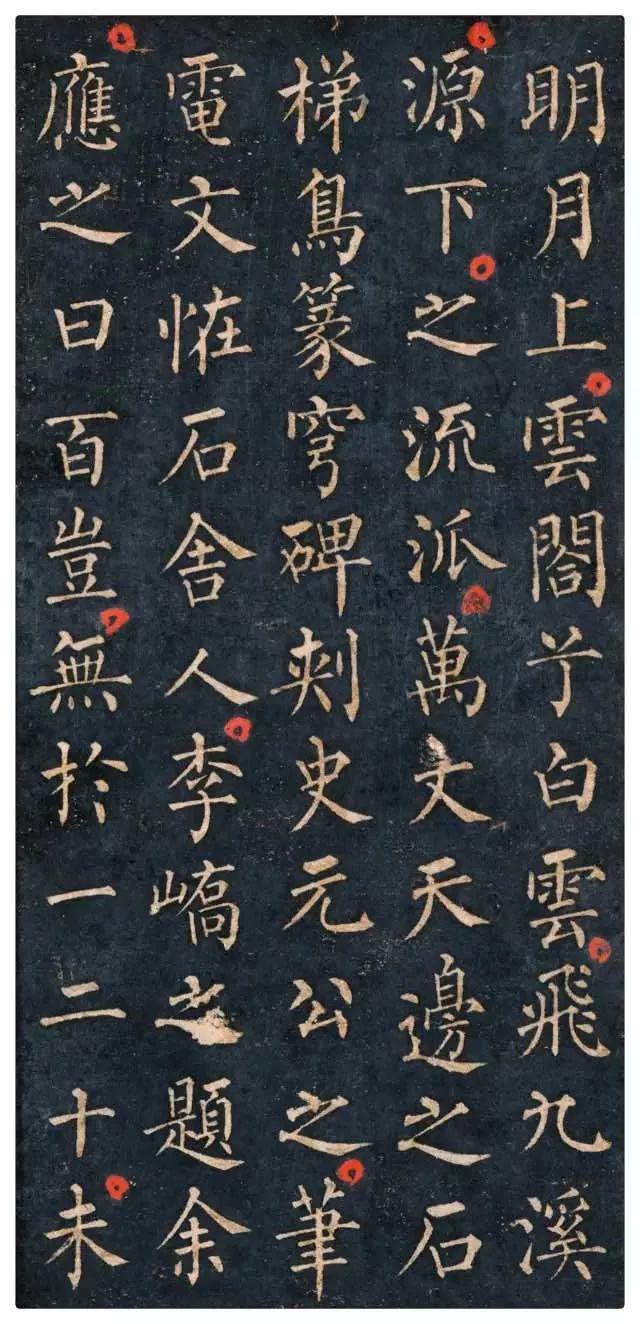 明月上雲閤白雲飛九溪
源下之流派萬丈天邊之石
梯鳥篆穹碑刺史元公之筆
電文恠石舍人李嶠之題余
應之曰百豈無於一二十未